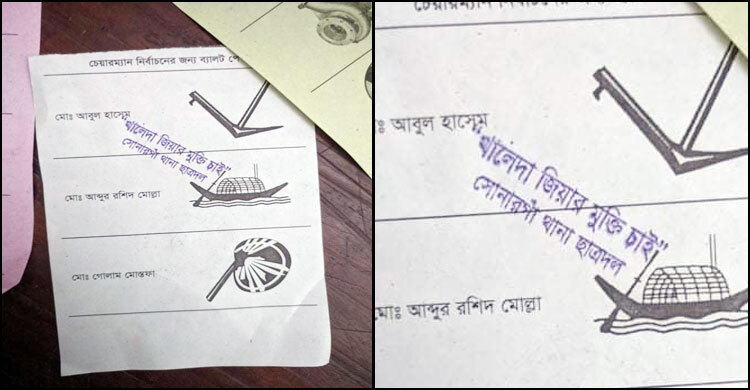 চেয়ারম্যান নির্বাচনের জন্য ব্যালট পে
মোঃ আবুল হাসেম
"খালেদা জিয়ার মুক্তি চাই"
সোনারগাঁ থানা ছাত্রদল
মোঃ আব্দুর রশিদ মোল্লা
মোঃ গোলাম মোস্তফা
চেয়ারম্যান নির্বাচনের জন্য
ঃ আবুল হাসেম
"খালেদা জিয়ার মুক্তি চাই"
সোনারগাঁ থানা ছাত্রদল
মোঃ আব্দুর রশিদ মোল্লা